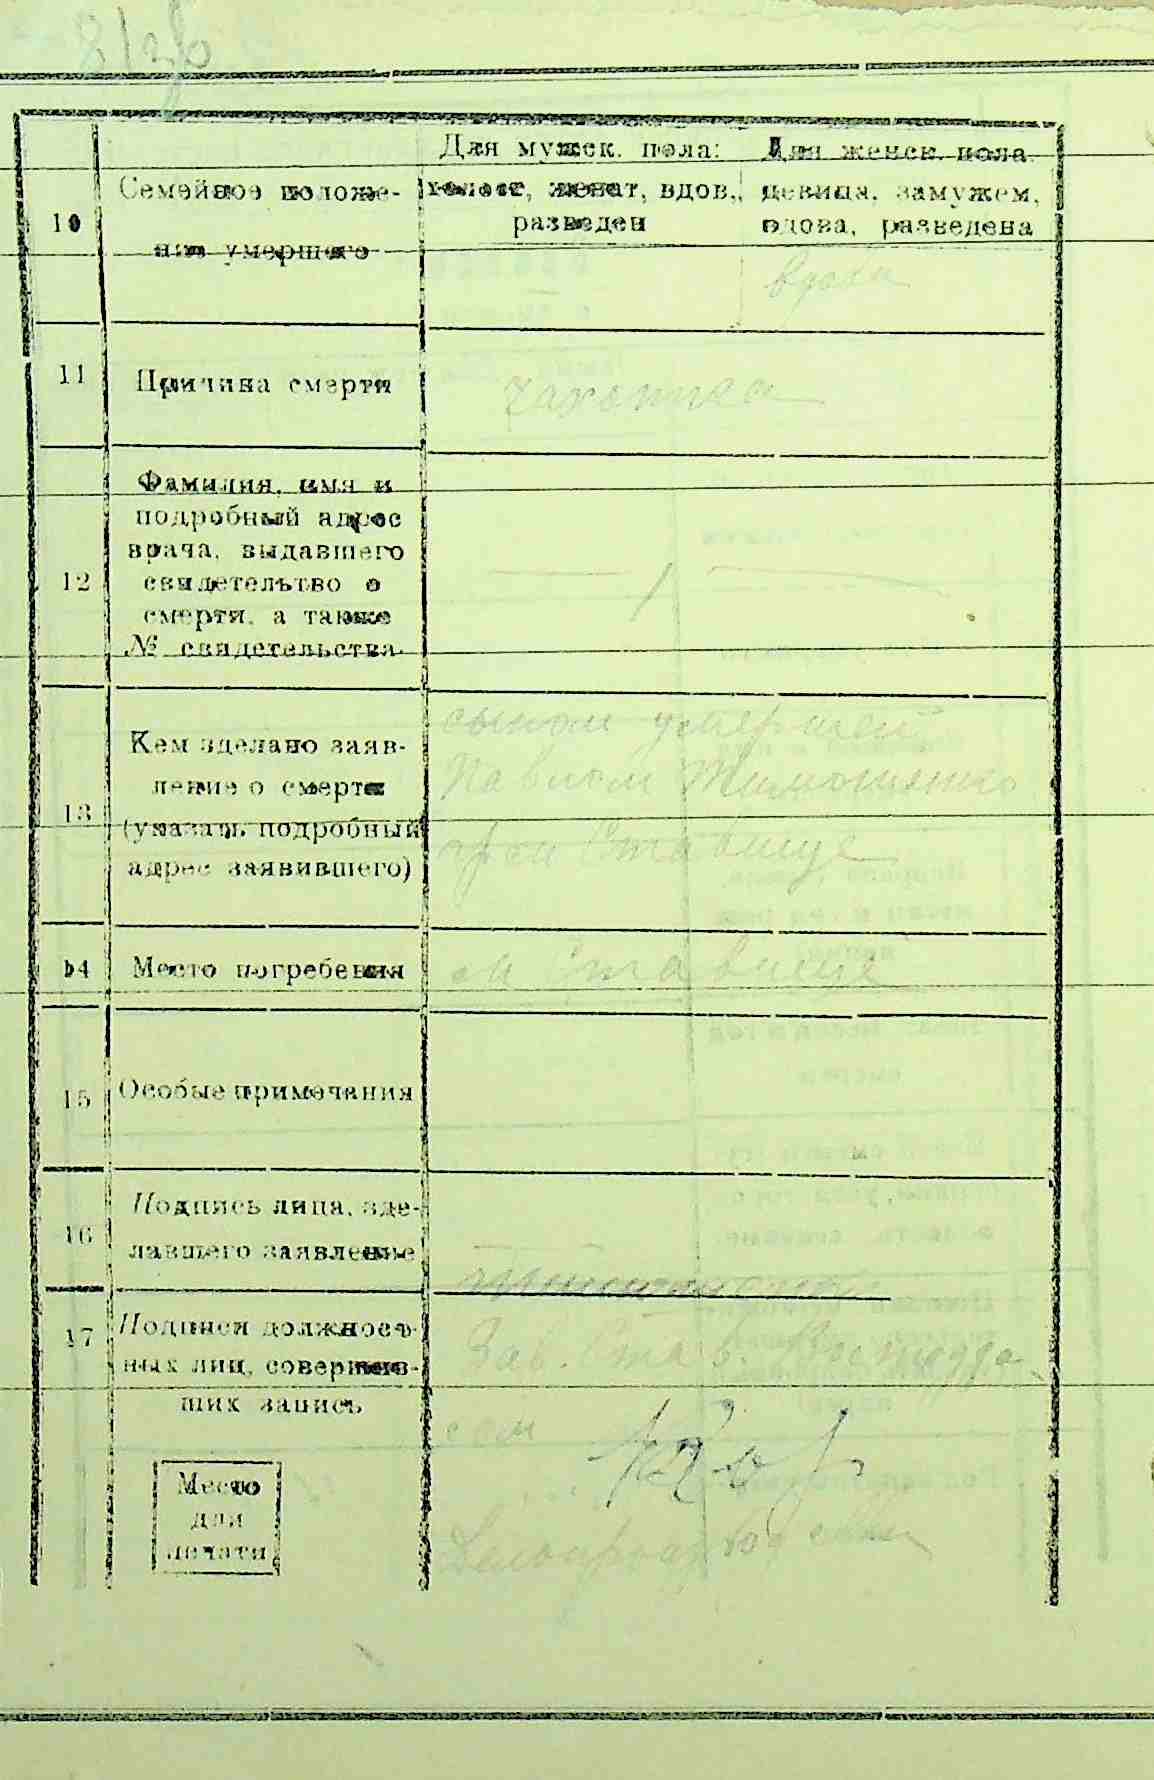 Для мужск. пола: Для женск. пола
10 Семейное положе- холост, женат, вдов., девица, замужем,
разведен вдова, разведена
ние умершего
вдова
11 Причина смерти чахотка
Фамилия, имя и
подробный адрес
врача, выдавшего
12 свидетельтво о
смерти, а также
№ свидетельства
сыном умершей
Кем зделано заяв-
Павлом Тимошенко
ление о смерти
13
(указать подробный
Ставище
адрес заявившего)
14 Место погребения м Ставище
15 Особые примечания
Подпись лица, зде-
16
лавшего заявление
17 Подписи должност-
Зав. Став.
ных лиц, совершив-
ших запись
Место
для
печати
Делопроизводитель